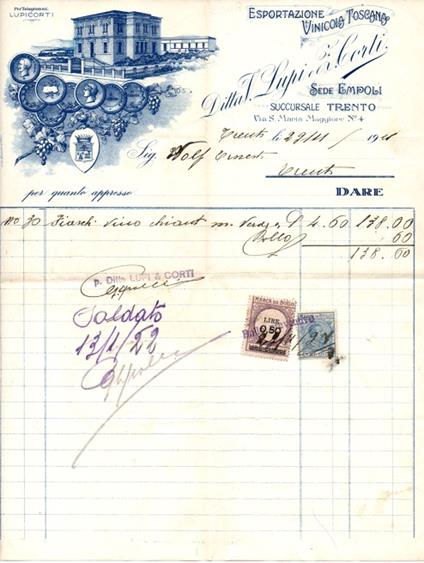 Per Telegrammi:
LUPICORTI
ESPORTAZIONE
VINICOLA TOSCANA
Ditta F. Lupi & Corti.
SEDE EMPOLI
SUCCURSALE TRENTO
Via S. Maria Maggiore No 4
Trento li 29/11/19
Sig. Wolf Ernesto
Trento
per quanto appresso
DARE
No 30 Fiaschi vino chianti m. Verde a £ 4.60 138.00
Bollo .60
138.60
P. Ditta LUPI & CORTI
Saldato
13/1/22
MARCA DA BOLLO
LIRE
0,50